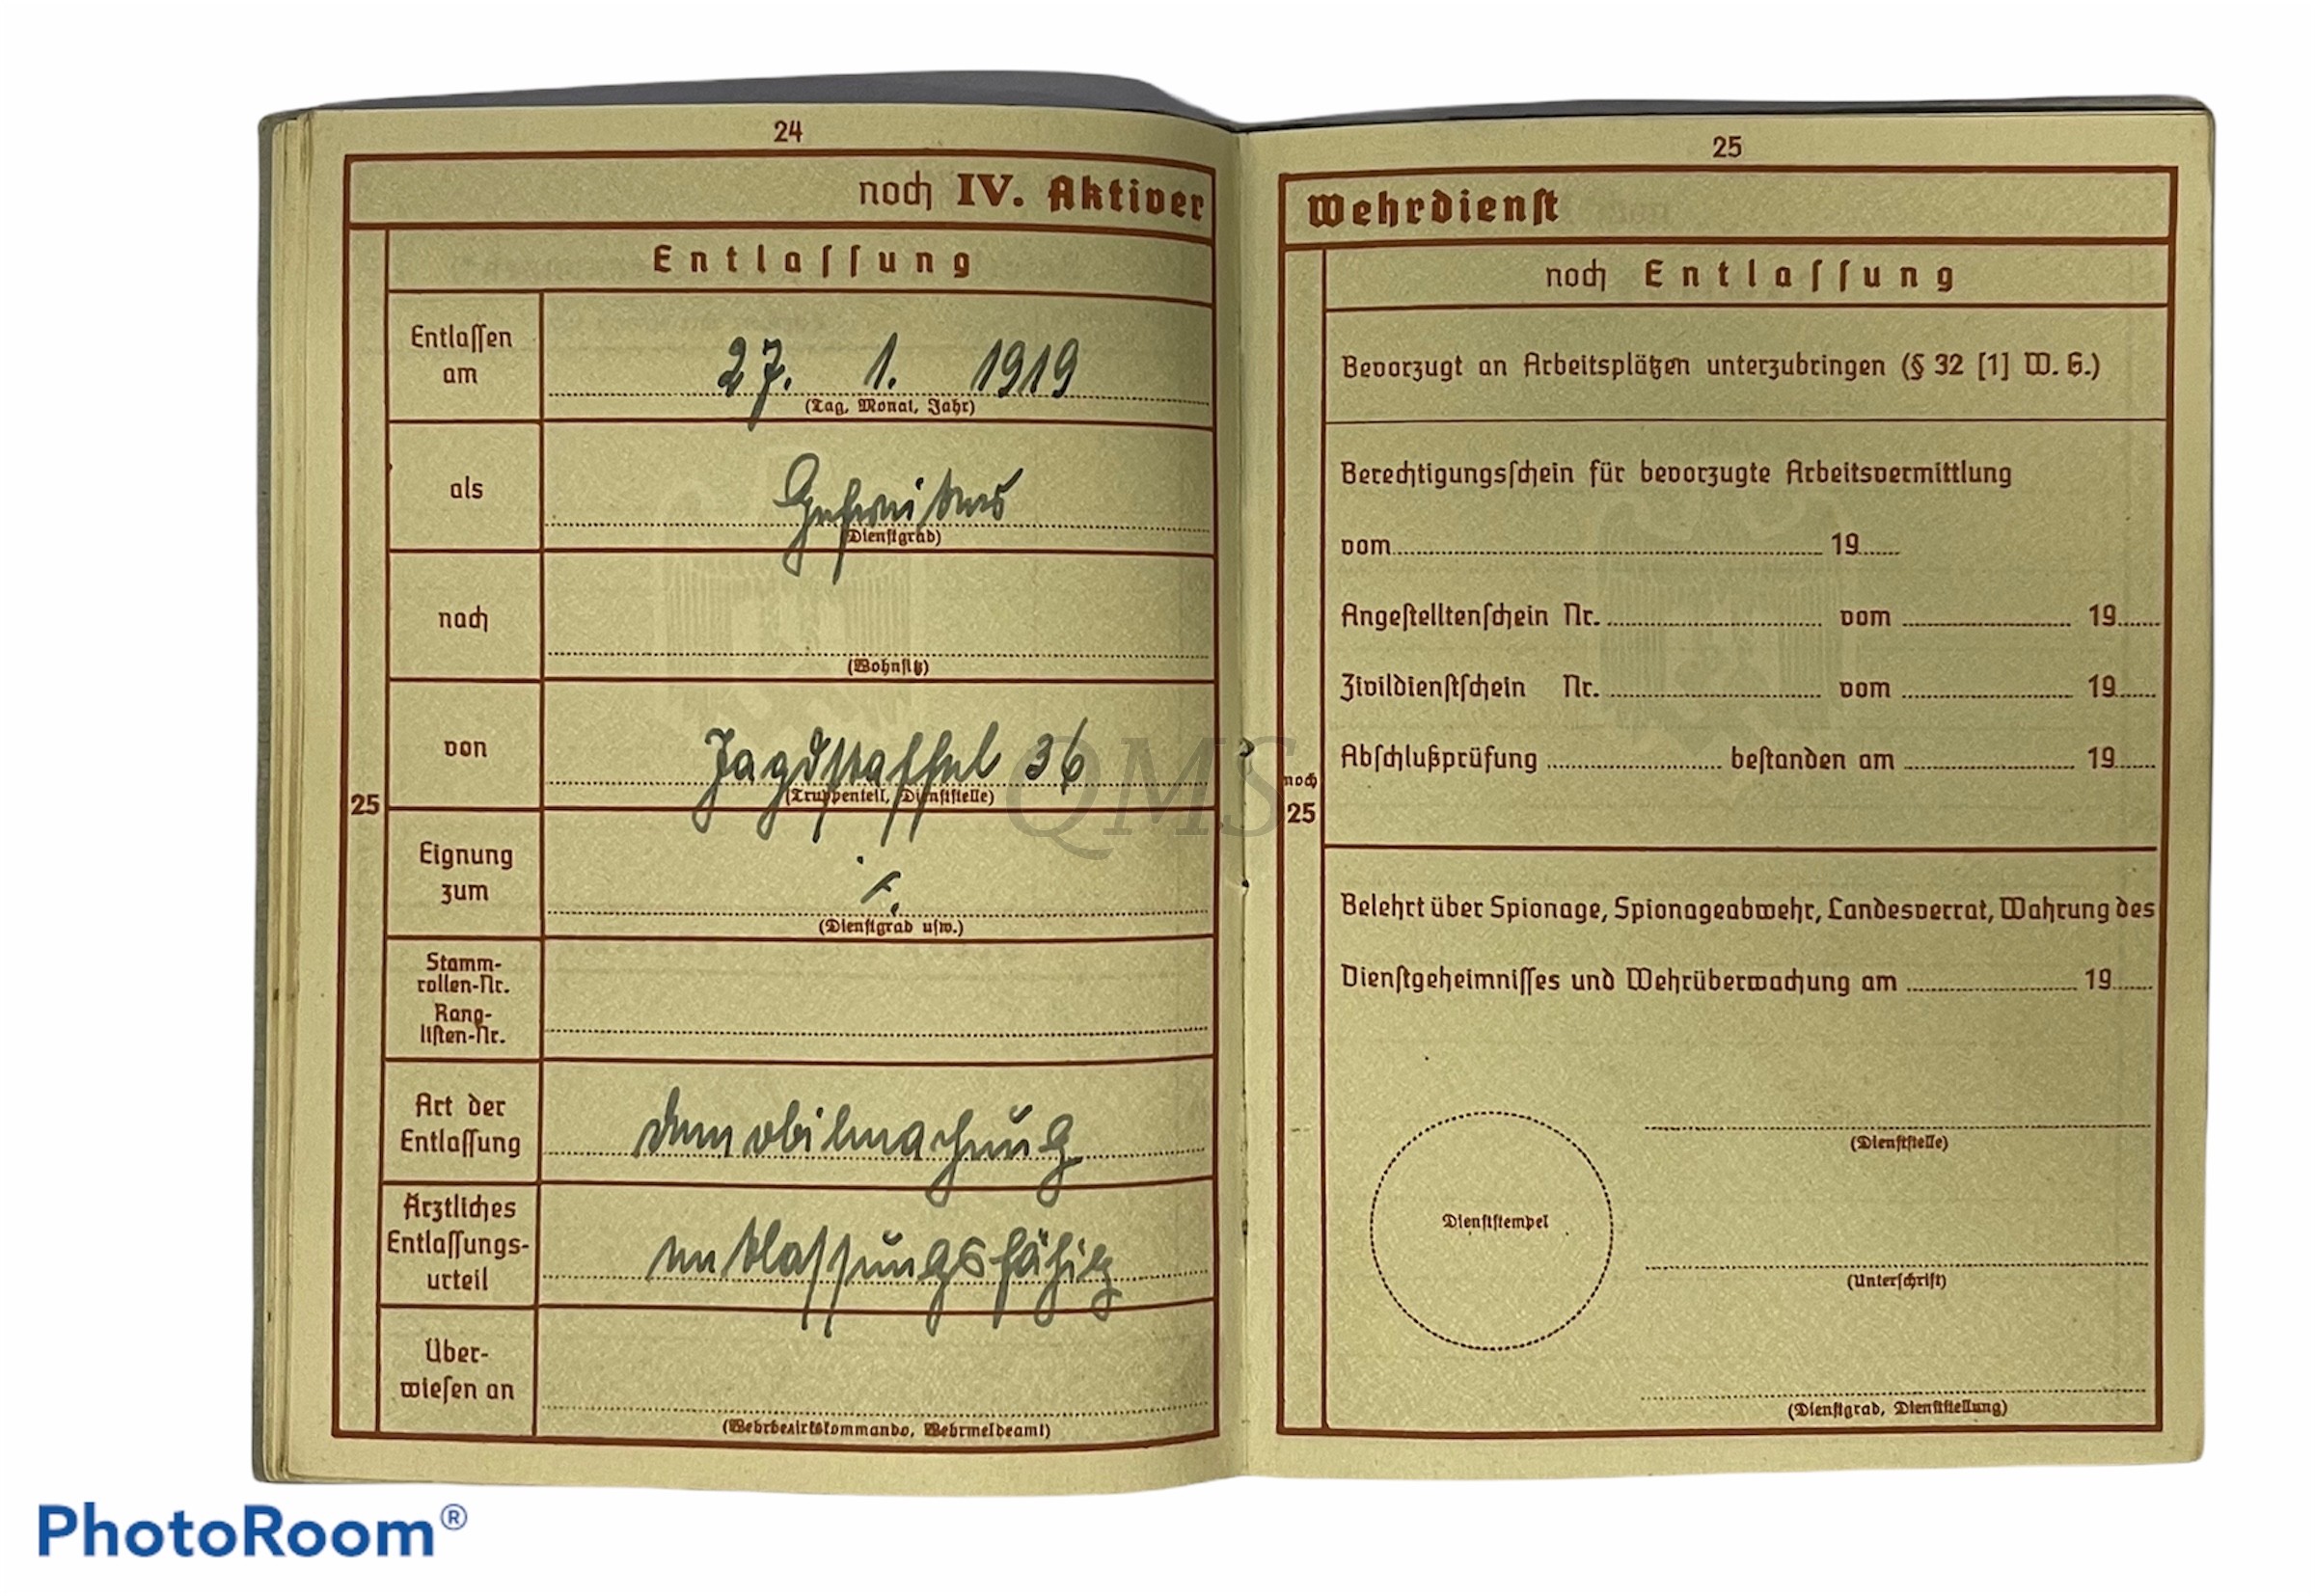 24
noch IV. Aktiver
Entlassung
Entlassen am
27. 1. 1919
(Tag, Monat, Jahr)
als
Gefreiter
(Dienstgrad)
nach
(Wohnsitz)
von
Jagdstaffel 36
(Truppenteil, Dienststelle)
25
Eignung zum
(Dienstgrad usw.)
Stamm-
rollen-Nr.
Rang-
listen-Nr.
Art der
Entlassung
demobilmachung
Ärztliches
Entlassungs-
urteil
entlassungsfähig
Über-
wiesen an
(Wehrbezirkskommando, Wehrmeldeamt)
25
Wehrdienst
noch Entlassung
Bevorzugt an Arbeitsplätzen unterzubringen (§ 32 [1] W. G.)
Berechtigungsschein für bevorzugte Arbeitsvermittlung
vom 19
Angestelltenschein Nr. vom 19
Zivildienstschein Nr. vom 19
Abschlußprüfung bestanden am 19
noch
25
Belehrt über Spionage, Spionageabwehr, Landesverrat, Wahrung des
Dienstgeheimnisses und Wehrüberwachung am 19
(Dienststelle)
Dienststempel
(Unterschrift)
(Dienstgrad, Dienststellung)
QMS
PhotoRoom®